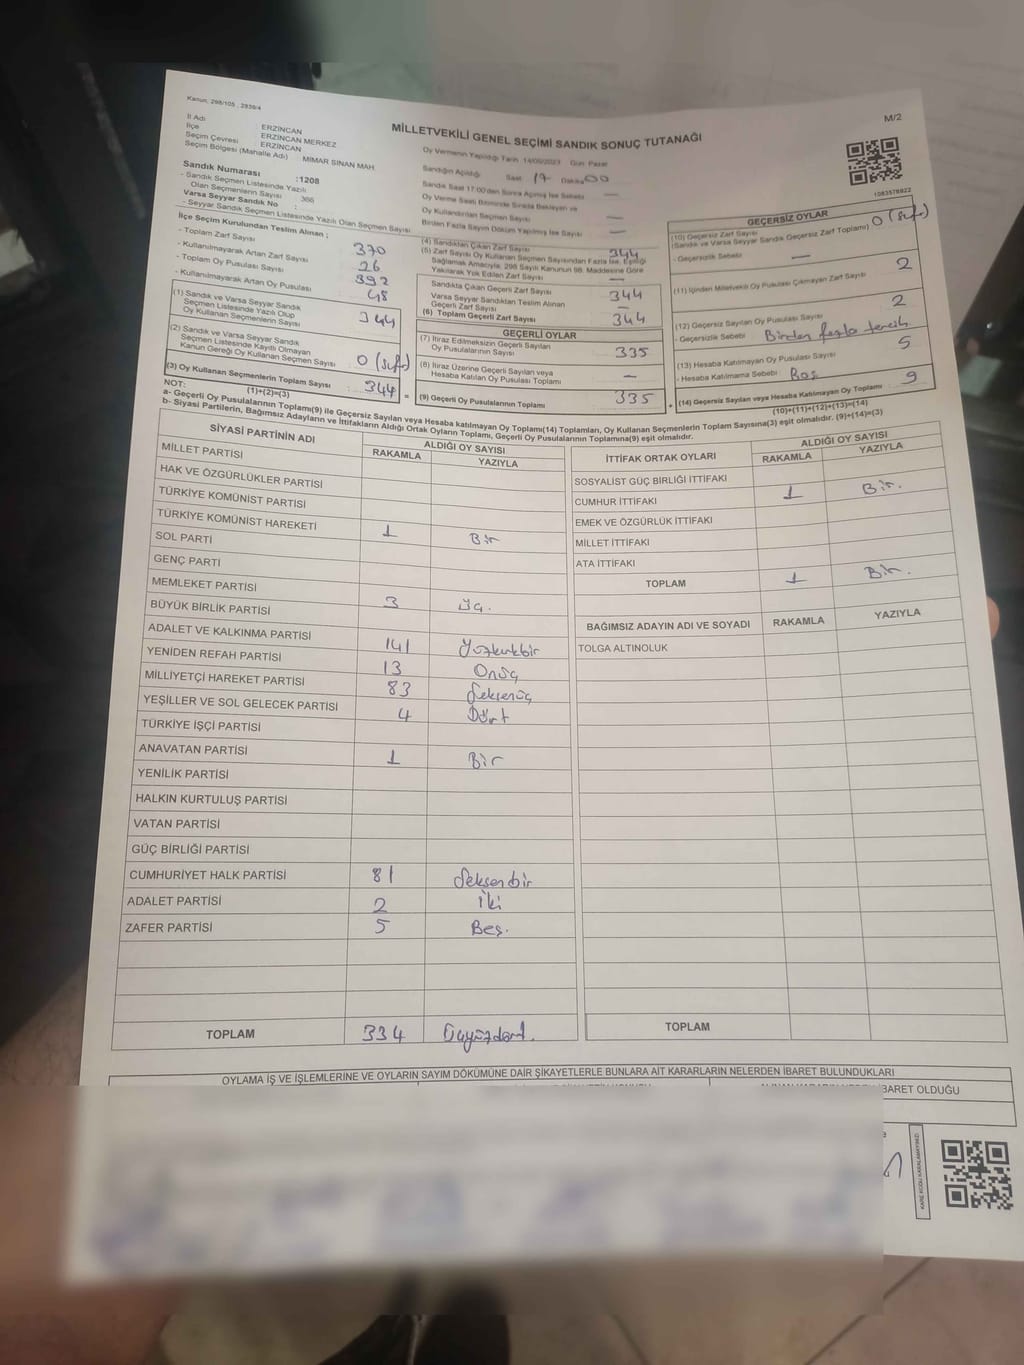 Kanun: 298/105 , 2839/4
M/2
MİLLETVEKİLİ GENEL SEÇİMİ SANDIK SONUÇ TUTANAĞI
İl Adı : ERZİNCAN
İlçe : ERZİNCAN MERKEZ
Seçim Çevresi : ERZİNCAN
Seçim Bölgesi (Mahalle Adı) MİMAR SİNAN MAH.
Sandık Numarası :1208
- Sandık Seçmen Listesinde Yazılı
Olan Seçmenlerin Sayısı : 366
Varsa Seyyar Sandık No :
- Seyyar Sandık Seçmen Listesinde Yazılı Olan Seçmen Sayısı
Oy Vermenin Yapıldığı Tarih 14/05/2023 Gün Pazar
Sandığın Açıldığı Saat 17 Dakika 00
Sandık Saat 17:00'den Sonra Açılmış İse Sebebi —
Oy Verme Saati Bitiminde Sırada Bekleyen ve
Oy Kullandırılan Seçmen Sayısı —
Birden Fazla Sayım Döküm Yapılmış İse Sayısı —
1083578822
İlçe Seçim Kurulundan Teslim Alınan ;
- Toplam Zarf Sayısı 370
- Kullanılmayarak Artan Zarf Sayısı 26
- Toplam Oy Pusulası Sayısı 392
- Kullanılmayarak Artan Oy Pusulası 48
(1) Sandık ve Varsa Seyyar Sandık
Seçmen Listesinde Yazılı Olup
Oy Kullanan Seçmenlerin Sayısı 344
(2) Sandık ve Varsa Seyyar Sandık
Seçmen Listesinde Kayıtlı Olmayan
Kanun Gereği Oy Kullanan Seçmen Sayısı 0 (sıfır)
(3) Oy Kullanan Seçmenlerin Toplam Sayısı 344
(1)+(2)=(3)
(4) Sandıktan Çıkan Zarf Sayısı 344
(5) Zarf Sayısı Oy Kullanan Seçmen Sayısından Fazla İse, Eşitliği
Sağlamak Amacıyla, 298 Sayılı Kanunun 98. Maddesine Göre
Yakılarak Yok Edilen Zarf Sayısı —
Sandıkta Çıkan Geçerli Zarf Sayısı 344
Varsa Seyyar Sandıktan Teslim Alınan
Geçerli Zarf Sayısı —
(6) Toplam Geçerli Zarf Sayısı 344
GEÇERLİ OYLAR
(7) İtiraz Edilmeksizin Geçerli Sayılan
Oy Pusulalarının Sayısı 335
(8) İtiraz Üzerine Geçerli Sayılan veya
Hesaba Katılan Oy Pusulası Toplamı —
(9) Geçerli Oy Pusulalarının Toplamı 335
GEÇERSİZ OYLAR
(10) Geçersiz Zarf Sayısı
(Sandık ve Varsa Seyyar Sandık Geçersiz Zarf Toplamı) 0 (sıfır)
- Geçersizlik Sebebi: —
(11) İçinden Milletvekili Oy Pusulası Çıkmayan Zarf Sayısı 2
(12) Geçersiz Sayılan Oy Pusulası Sayısı 2
- Geçersizlik Sebebi Birden fazla tercih.
(13) Hesaba Katılmayan Oy Pusulası Sayısı 5
- Hesaba Katılmama Sebebi Boş
(14) Geçersiz Sayılan veya Hesaba Katılmayan Oy Toplamı 9
(10)+(11)+(12)+(13)=(14)
NOT:
a- Geçerli Oy Pusulalarının Toplamı(9) ile Geçersiz Sayılan veya Hesaba katılmayan Oy Toplamı(14) Toplamları, Oy Kullanan Seçmenlerin Toplam Sayısına(3) eşit olmalıdır. (9)+(14)=(3)
b- Siyasi Partilerin, Bağımsız Adayların ve İttifakların Aldığı Ortak Oyların Toplamı, Geçerli Oy Pusulalarının Toplamına(9) eşit olmalıdır.
SİYASİ PARTİNİN ADI ALDIĞI OY SAYISI
RAKAMLA YAZIYLA
MİLLET PARTİSİ
HAK VE ÖZGÜRLÜKLER PARTİSİ
TÜRKİYE KOMÜNİST PARTİSİ
TÜRKİYE KOMÜNİST HAREKETİ 1 Bir
SOL PARTİ
GENÇ PARTİ
MEMLEKET PARTİSİ
BÜYÜK BİRLİK PARTİSİ 3 Üç.
ADALET VE KALKINMA PARTİSİ 141 Yüzkırkbir
YENİDEN REFAH PARTİSİ 13 Onüç
MİLLİYETÇİ HAREKET PARTİSİ 83 Seksenüç
YEŞİLLER VE SOL GELECEK PARTİSİ 4 Dört
TÜRKİYE İŞÇİ PARTİSİ
ANAVATAN PARTİSİ 1 Bir
YENİLİK PARTİSİ
HALKIN KURTULUŞ PARTİSİ
VATAN PARTİSİ
GÜÇ BİRLİĞİ PARTİSİ
CUMHURİYET HALK PARTİSİ 81 Seksenbir
ADALET PARTİSİ 2 İki
ZAFER PARTİSİ 5 Beş.
TOPLAM 334 Üçyüzdört.
İTTİFAK ORTAK OYLARI ALDIĞI OY SAYISI
RAKAMLA YAZIYLA
SOSYALİST GÜÇ BİRLİĞİ İTTİFAKI
CUMHUR İTTİFAKI 1 Bir.
EMEK VE ÖZGÜRLÜK İTTİFAKI
MİLLET İTTİFAKI
ATA İTTİFAKI
TOPLAM 1 Bir.
BAĞIMSIZ ADAYIN ADI VE SOYADI RAKAMLA YAZIYLA
TOLGA ALTINOLUK
TOPLAM
OYLAMA İŞ VE İŞLEMLERİNE VE OYLARIN SAYIM DÖKÜMÜNE DAİR ŞİKAYETLERLE BUNLARA AİT KARARLARIN NELERDEN İBARET BULUNDUKLARI
İBARET OLDUĞU
KARE KODU KARALAMAYINIZ!